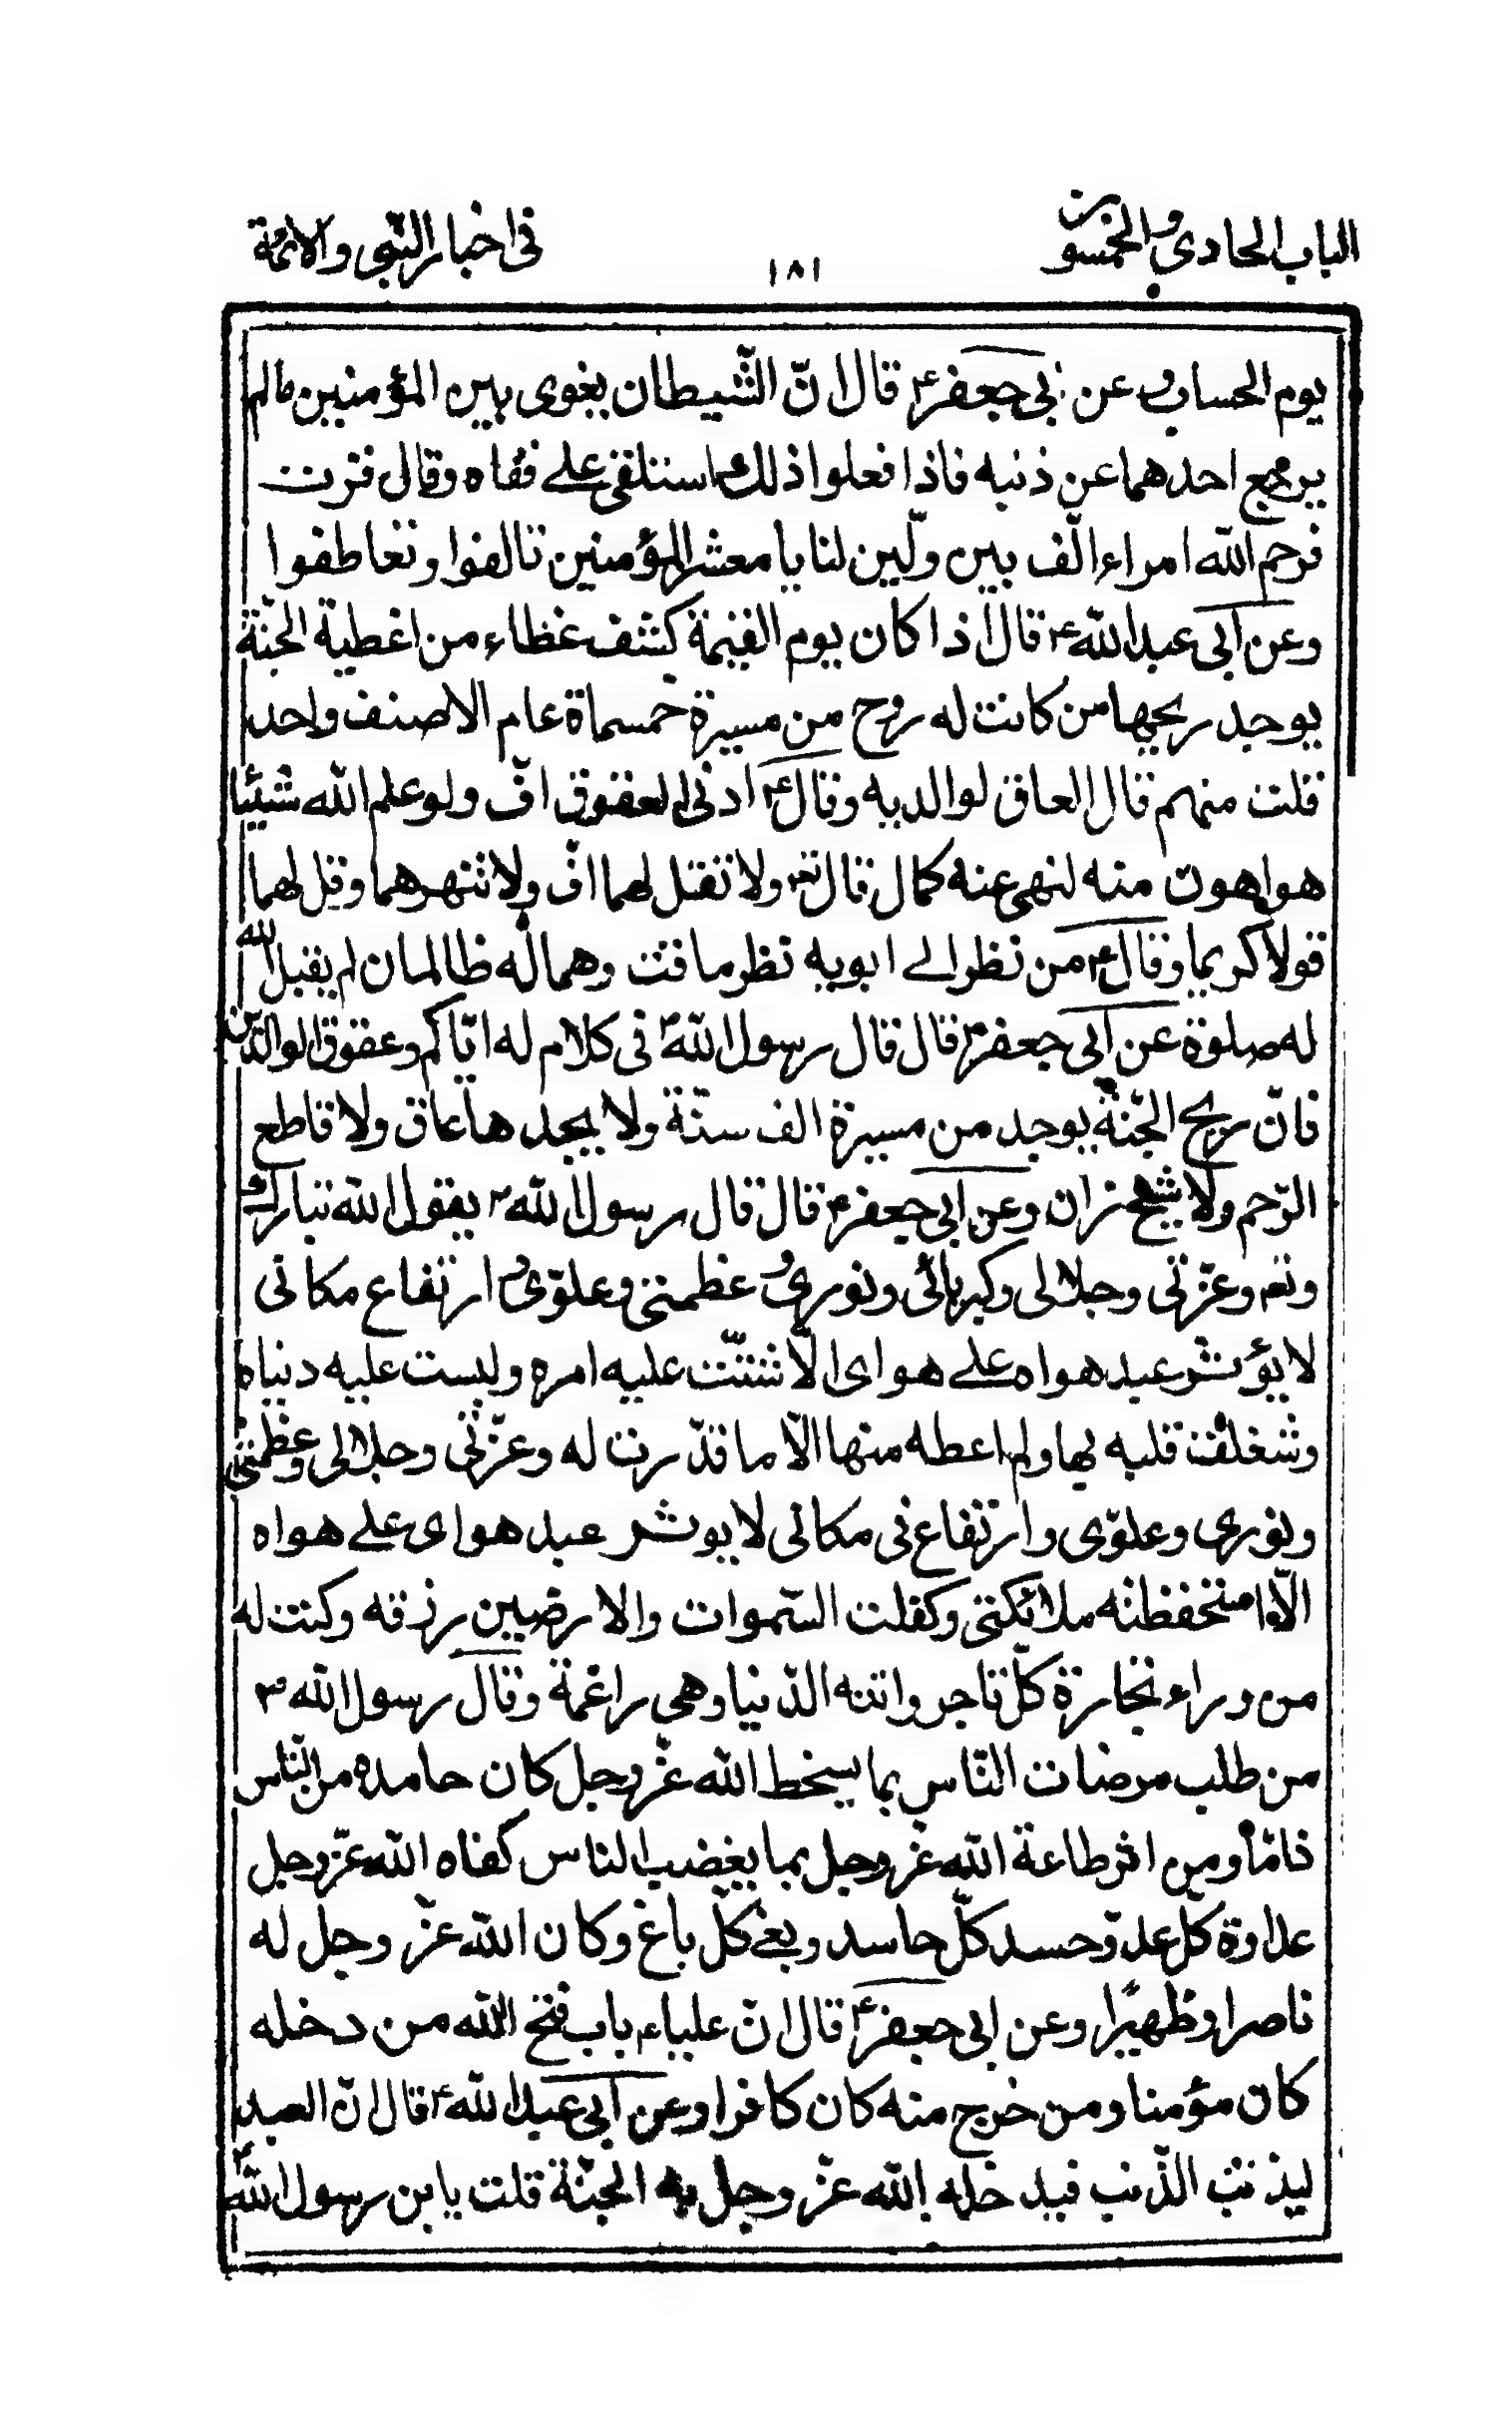 الباب الحادي والخمسون
١٨١
في اخبار النّبي والائمّة
يوم الحساب وعن ابي جعفر ع قال انّ الشّيطان يغوى بين المؤمنين مالم
يرجع احدهما عن ذنبه فاذا فعلوا ذلك استلقى على قفاه وقال فزت
فرحم الله امراء الّف بين وليّين لنا يا معشر المؤمنين تالفوا وتعاطفوا
وعن ابى عبد الله ع قال اذا كان يوم القيمة كشف غطاء من اغطية الجنّة
يوجد ريحها من كانت له روح من مسيرة خمسماة عام الا صنف واحد
قلت منهم قال العاق لوالديه وقال ع ادنى العقوق افّ ولو علم الله شيئا
هو اهون منه لنهى عنه كما قال تع ولا تقل لهما افّ ولا تنهرهما وقل لهما
قولا كريما وقال ع من نظر الى ابويه نظر ماقت وهما له ظالمان لم يقبل الله
له صلوة عن ابى جعفر ع قال قال رسول الله ص فى كلام له ايّاكم وعقوق الوالدين
فانّ ريح الجّنة يوجد من مسيرة الف سنّة ولا يجدها عاق ولا قاطع
الرّحم ولا شيخ زان وعن ابى جعفر ع قال قال رسول الله ص يقول الله تبارك و
وتع وعزّتي وجلالى وكبريائى ونورى وعظمتى وعلوّى وارتفاع مكانى
لا يؤثر عبد هواه على هواى الّا شتّتّ عليه امره ولبست عليه دنياه
وشغلت قلبه بها ولم اعطه منها الّا ما قدّرت له وعزّتى وجلالى وعظمتى
ونورى وعلوّى وارتفاع فى مكانى لا يوثر عبد هواى على هواه
الّا استحفظته ملائكتى وكفلت السّموات والارضين رزقه وكنت له
من وراء تجارة كلّ تاجر واتته الدّنيا وهى راغمة وقال رسول الله ص
من طلب مرضات النّاس بما يسخط الله عزّ وجل كان حامده من النّاس
ذامّا ومن اثر طاعة الله عزّ وجل بما يغضب الناس كفاه الله عزّ وجل
عداوة كلّ عدوّ وحسد كلّ حاسد وبغى كلّ باغ وكان الله عزّ وجل له
ناصرا وظهيرًا وعن ابى جعفر ع قال انّ عليا ع باب فتح الله من دخله
كان مؤمنا ومن خرج منه كان كافرا وعن ابى عبد الله ع قال انّ العبد
ليذنب الذّنب فيدخله الله عزّ وجل به الجنّة قلت يا بن رسول الله